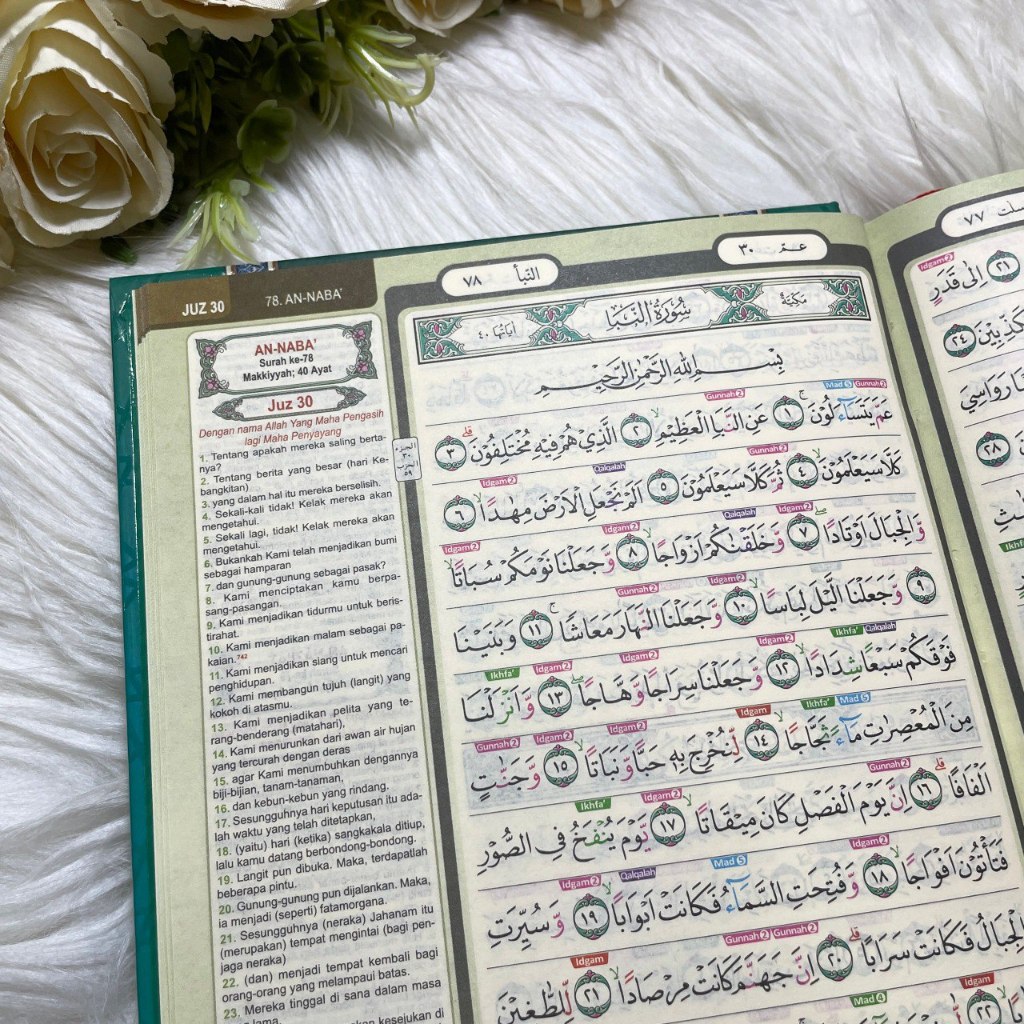 JUZ 30
78. AN-NABA'
AN-NABA'
Surah ke-78
Makkiyyah; 40 Ayat
Juz 30
Dengan nama Allah Yang Maha Pengasih
lagi Maha Penyayang
1. Tentang apakah mereka saling berta-
nya?
2. Tentang berita yang besar (hari Ke-
bangkitan)
3. yang dalam hal itu mereka berselisih.
4. Sekali-kali tidak! Kelak mereka akan
mengetahui.
5. Sekali lagi, tidak! Kelak mereka akan
mengetahui.
6. Bukankah Kami telah menjadikan bumi
sebagai hamparan
7. dan gunung-gunung sebagai pasak?
8. Kami menciptakan kamu berpa-
sang-pasangan.
9. Kami menjadikan tidurmu untuk beris-
tirahat.
10. Kami menjadikan malam sebagai pa-
kaian.742
11. Kami menjadikan siang untuk mencari
penghidupan.
12. Kami membangun tujuh (langit) yang
kokoh di atasmu.
13. Kami menjadikan pelita yang te-
rang-benderang (matahari),
14. Kami menurunkan dari awan air hujan
yang tercurah dengan deras
15. agar Kami menumbuhkan dengannya
biji-bijian, tanam-tanaman,
16. dan kebun-kebun yang rindang.
17. Sesungguhnya hari keputusan itu ada-
lah waktu yang telah ditetapkan,
18. (yaitu) hari (ketika) sangkakala ditiup,
lalu kamu datang berbondong-bondong.
19. Langit pun dibuka. Maka, terdapatlah
beberapa pintu.
20. Gunung-gunung pun dijalankan. Maka,
ia menjadi (seperti) fatamorgana.
21. Sesungguhnya (neraka) Jahanam itu
(merupakan) tempat mengintai (bagi pen-
jaga neraka)
22. (dan) menjadi tempat kembali bagi
orang-orang yang melampaui batas.
23. Mereka tinggal di sana dalam masa
lama.
kesejukan di
عمّ ٣٠
النّبأ ٧٨
مَكِّيَّة سُوْرَةُ النَّبَاِ اٰيَاتُهَا ٤٠
بِسْمِ اللّٰهِ الرَّحْمٰنِ الرَّحِيْمِ
Mad 5 Gunnah 2 Gunnah 2
عَمَّ يَتَسَاۤءَلُوْنَۚ ١ عَنِ النَّبَاِ الْعَظِيْمِۙ ٢ الَّذِيْ هُمْ فِيْهِ مُخْتَلِفُوْنَۗ ٣
الجزء
٣٠
الحزب
٥٩
Gunnah 2 Qalqalah Idgam 2
كَلَّا سَيَعْلَمُوْنَۙ ٤ ثُمَّ كَلَّا سَيَعْلَمُوْنَ ٥ اَلَمْ نَجْعَلِ الْاَرْضَ مِهٰدًاۙ ٦
Idgam 2 Qalqalah Idgam 2 Idgam 2
وَّالْجِبَالَ اَوْتَادًاۖ ٧ وَّخَلَقْنٰكُمْ اَزْوَاجًاۙ ٨ وَّجَعَلْنَا نَوْمَكُمْ سُبَاتًاۙ
Idgam 2 Gunnah 2
٩ وَّجَعَلْنَا الَّيْلَ لِبَاسًاۙ ١٠ وَّجَعَلْنَا النَّهَارَ مَعَاشًاۚ ١١ وَبَنَيْنَا
Qalqalah Ikhfa' Idgam 2 Idgam 2 Idgam 2 Ikhfa'
فَوْقَكُمْ سَبْعًا شِدَادًاۙ ١٢ وَّجَعَلْنَا سِرَاجًا وَّهَّاجًاۖ ١٣ وَّاَنْزَلْنَا
Mad 5 Ikhfa' Idgam Idgam 2 Idgam 2 Gunnah 2
مِنَ الْمُعْصِرٰتِ مَاۤءً ثَجَّاجًاۙ ١٤ لِّنُخْرِجَ بِهٖ حَبًّا وَّنَبَاتًاۙ ١٥ وَّجَنّٰتٍ
Gunnah 2 Idgam 2 Ikhfa'
اَلْفَافًاۗ ١٦ اِنَّ يَوْمَ الْفَصْلِ كَانَ مِيْقَاتًاۙ ١٧ يَّوْمَ يُنْفَخُ فِى الصُّوْرِ
Idgam 2 Mad 5 Qalqalah Idgam 2
فَتَأْتُوْنَ اَفْوَاجًاۙ ١٨ وَّفُتِحَتِ السَّمَاۤءُ فَكَانَتْ اَبْوَابًاۙ ١٩ وَّسُيِّرَتِ
Gunnah 2 Gunnah 2 Idgam
الْجِبَالُ فَكَانَتْ سَرَابًاۗ ٢٠ اِنَّ جَهَنَّمَ كَانَتْ مِرْصَادًاۙ ٢١ لِّلطّٰغِيْنَ
Idgam Mad 4
٢٢
٧٧
Idgam 2
٢١ اِلٰى قَدَرٍ
٢٤
رَوَاسِيَ
٢٨